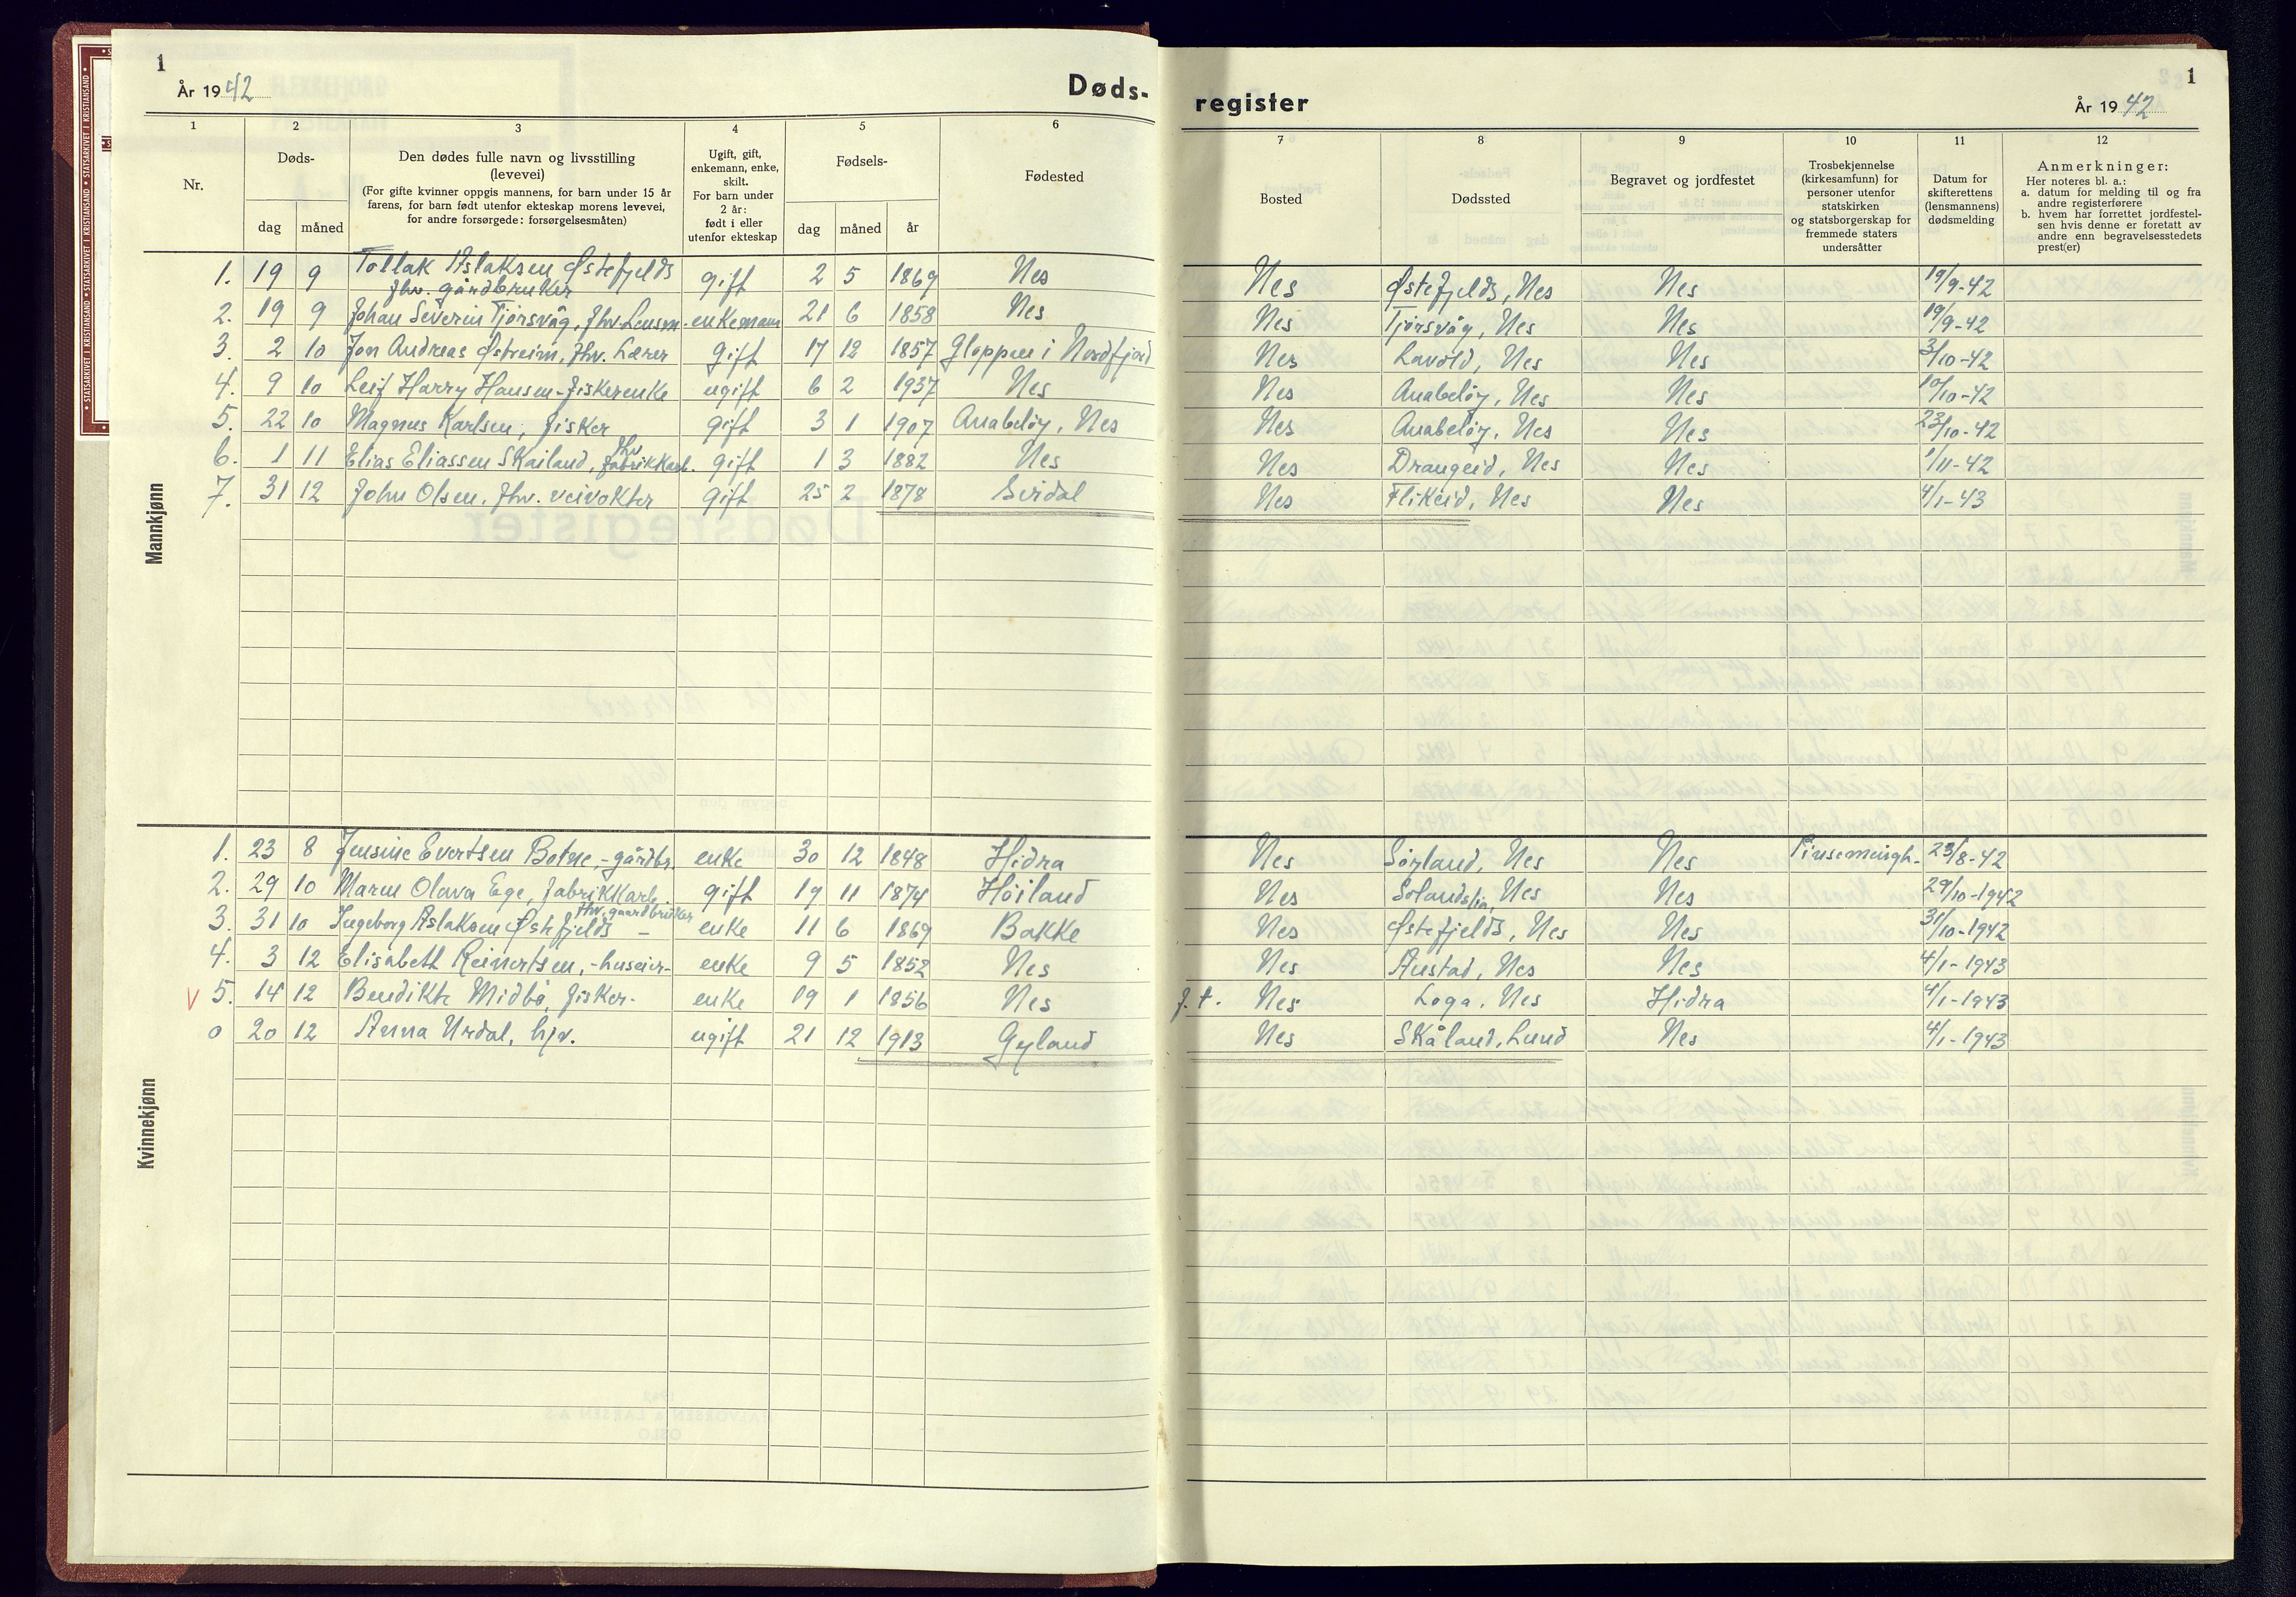 1
År 1942
Døds-
1 2 3 4 5 6
Nr.
Døds-
dag måned
Den dødes fulle navn og livsstilling
(levevei)
(For gifte kvinner oppgis mannens, for barn under 15 år
farens, for barn født utenfor ekteskap morens levevei,
for andre forsørgede: forsørgelsesmåten)
Ugift, gift,
enkemann, enke,
skilt.
For barn under
2 år:
født i eller
utenfor ekteskap
Fødsels-
dag måned år
Fødested
Mannkjønn
1. 19 9 Tollak Aslaksen Østefjelds gift 2 5 1869 Nes
fhv. gårdbruker
2. 19 9 Johan Severin Tjørsvåg, fhv. Lensm. enkemann 21 6 1858 Nes
3. 2 10 Jon Andreas Østreim, fhv. Lærer gift 17 12 1857 Gloppen i Nordfjord
4. 9 10 Leif Harry Hansen - fiskerenke ugift 6 2 1937 Nes
5. 22 10 Magnus Karlsen, fisker gift 3 1 1907 Anabeløy, Nes
6. 1 11 Elias Eliassen Skailand, fhv fabrikkarb. gift 1 3 1882 Nes
7. 31 12 John Olsen, fhv. veivokter gift 25 2 1878 Sirdal
Kvinnekjønn
1. 23 8 Jensine Evertsen Botne, - gårdbr. enke 30 12 1848 Hidra
2. 29 10 Maren Olava Ege, fabrikkarb. gift 19 11 1874 Höiland
3. 31 10 Ingeborg Aslaksen Østefjelds - fhv. gaardbruker enke 11 6 1869 Bakke
4. 3 12 Elisabeth Reinertsen, - huseier- enke 9 5 1852 Nes
V 5. 14 12 Bendikte Midbö, fisker- enke 19 1 1856 Nes
0 20 12 Anna Urdal, hjv. ugift 21 12 1913 Gyland
register
1
År 1942
7 8 9 10 11 12
Bosted
Dødssted
Begravet og jordfestet
Trosbekjennelse
(kirkesamfunn) for
personer utenfor
statskirken
og statsborgerskap for
fremmede staters
undersåtter
Datum for
skifterettens
(lensmannens)
dødsmelding
Anmerkninger:
Her noteres bl. a.:
a. datum for melding til og fra
andre registerførere
b. hvem har forrettet jordfestel-
sen hvis denne er foretatt av
andre enn begravelsesstedets
prest(er)
Nes Østefjelds, Nes Nes 19/9-42
Nes Tjørsvåg, Nes Nes 19/9-42
Nes Lavold, Nes Nes 3/10-42
Nes Anabeløy, Nes Nes 10/10-42
Nes Anabeløy, Nes Nes 23/10-42
Nes Drangeid, Nes Nes 1/11-42
Nes Flikeid, Nes Nes 4/1-43
Nes Söyland, Nes Nes Pinsemeingh- 23/8-42
Nes Solandslia, Nes Nes 29/10-1942
Nes Østefjelds, Nes Nes 31/10-1942
Nes Austad, Nes Nes 4/1-1943
f.t. Nes Loga, Nes Hidra 4/1-1943
Nes Skåland, Lund Nes 4/1-1943